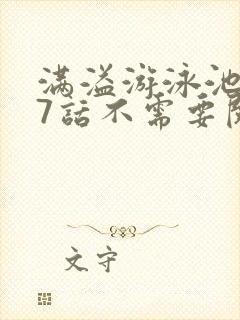 满溢游泳池
7話不需要
文守